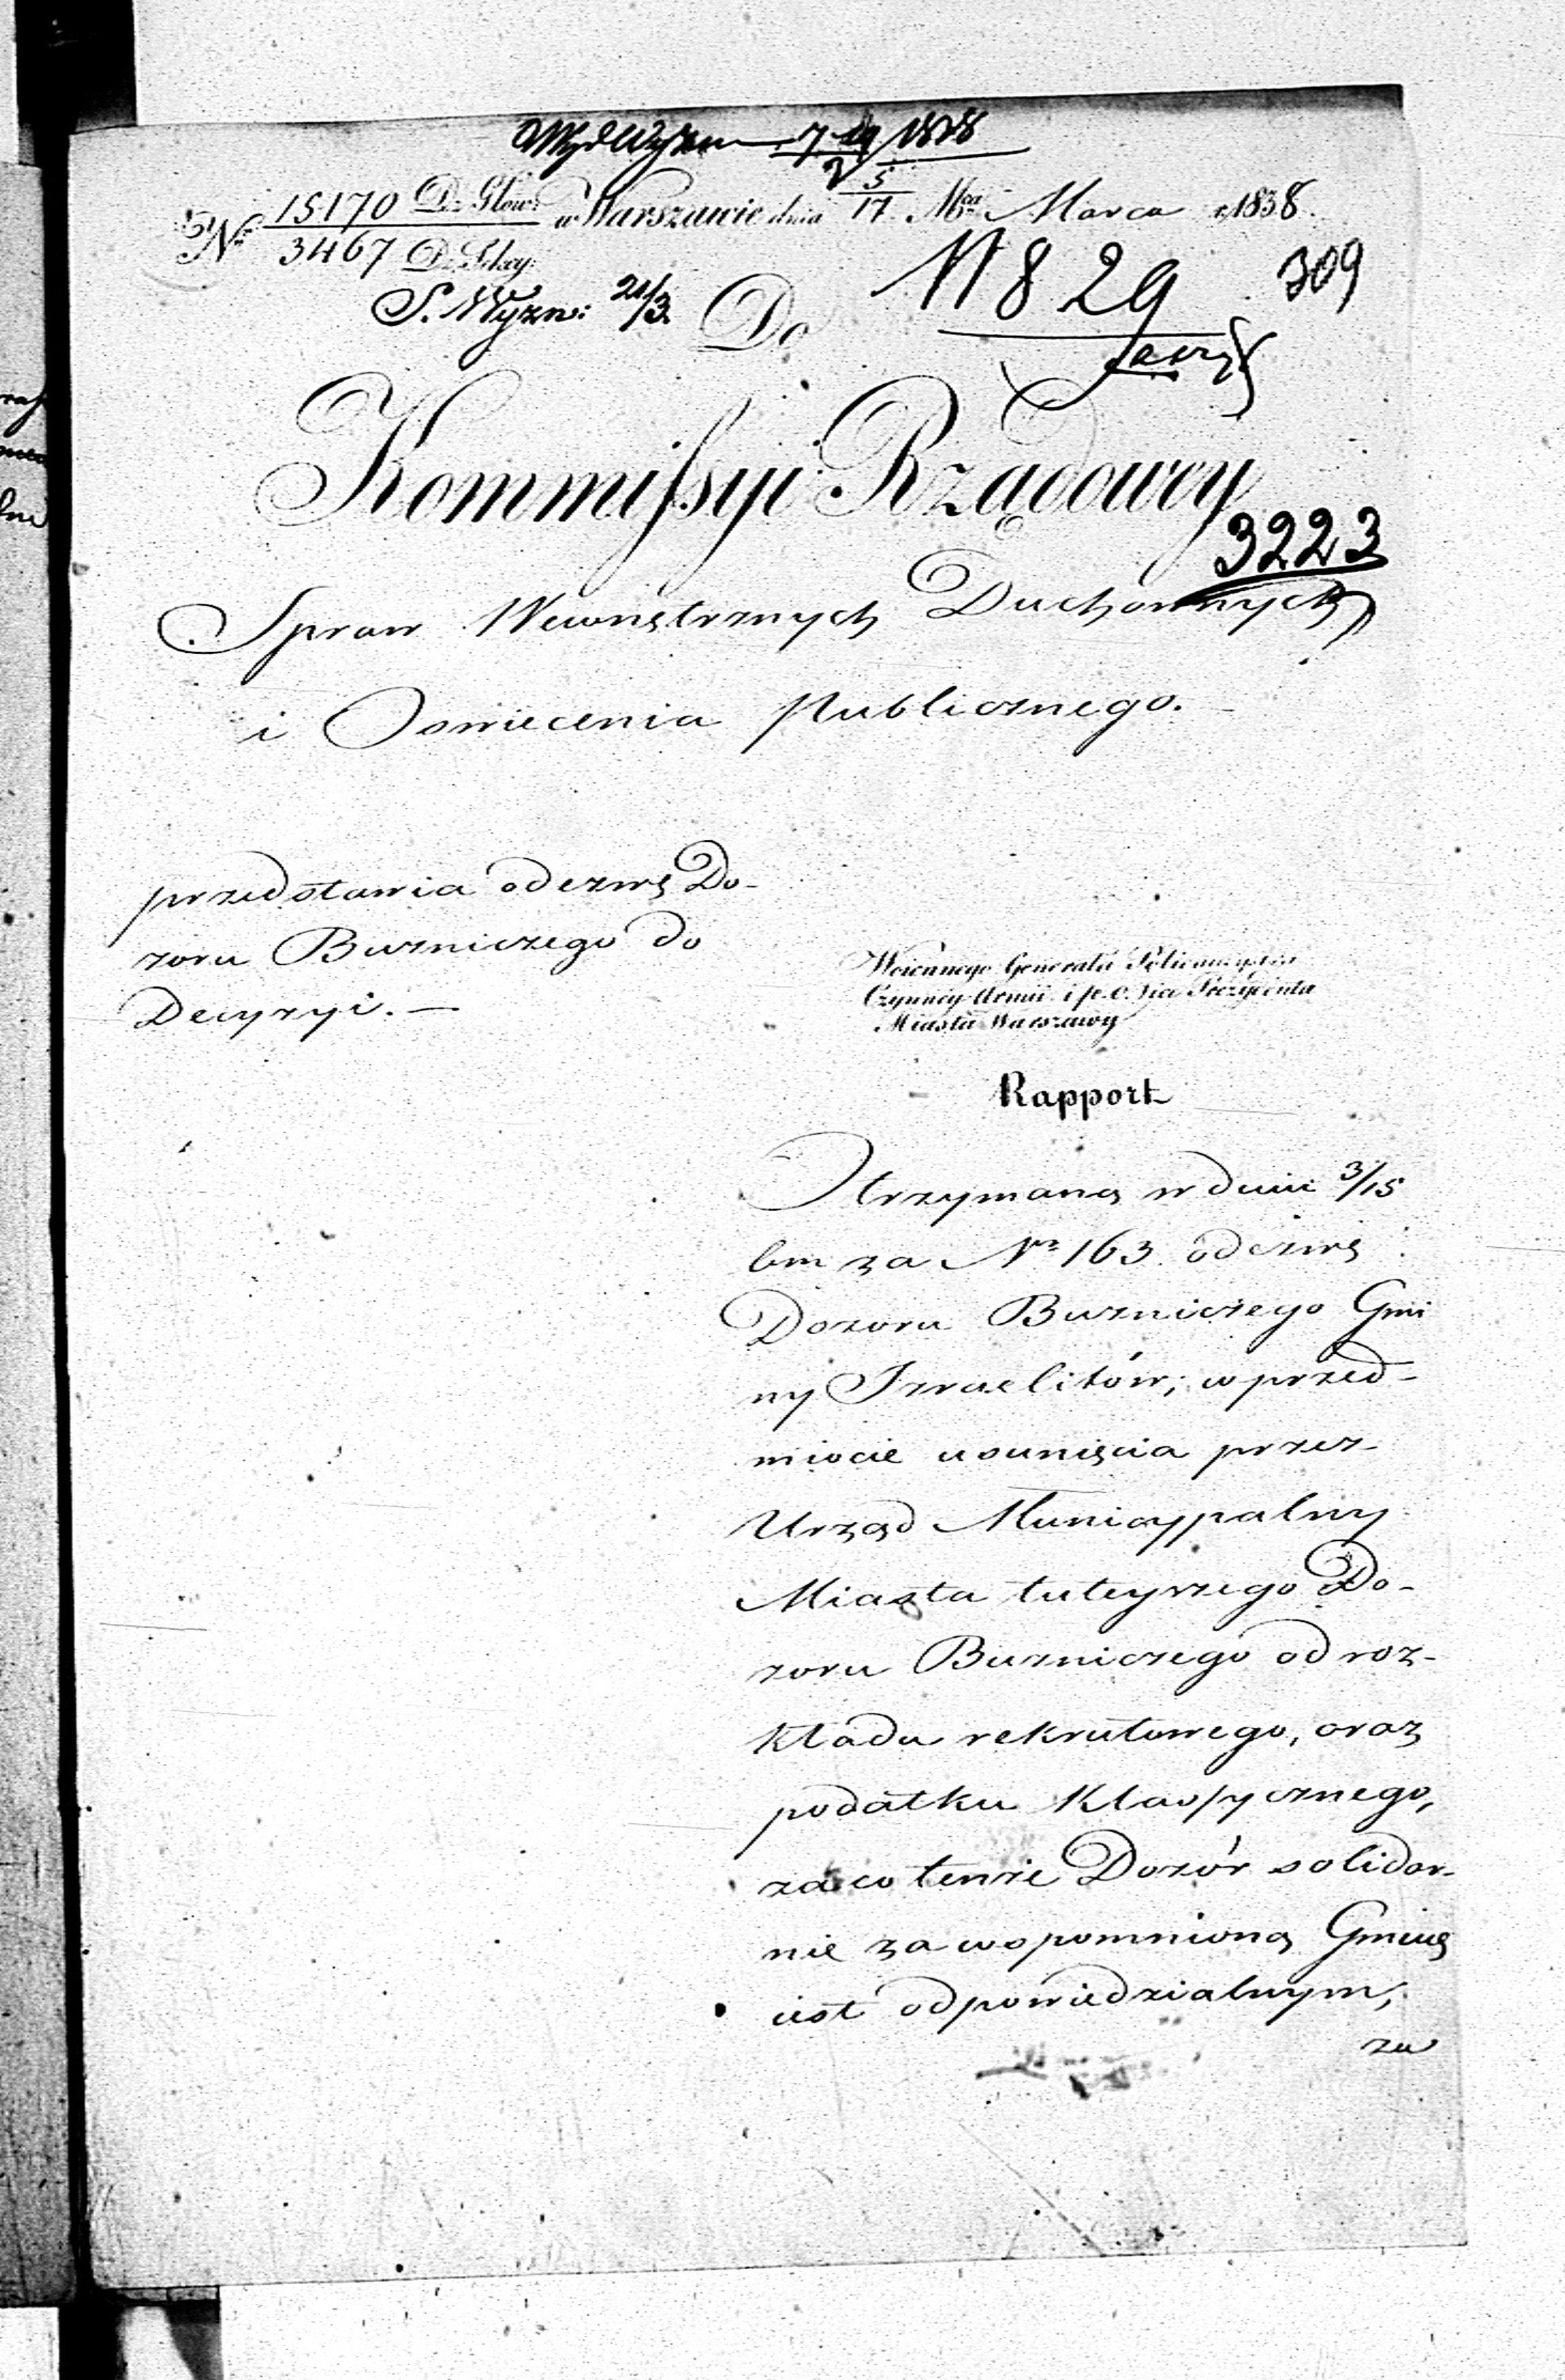 15170 Dz. Głów:
Nr w Warszawie dnia 5/17 Mca Marca r. 1838.
3467 Dz. Sekcy:
S. Wyzn: 21/3. Do N 829 309
Kommissyi Rządowey
3223
Spraw Wewnętrznych Duchownych
i Oswiecenia Publicznego.
przedstawia odezwę Do-
zoru Bużniczego do
Decyzyi. —
Woiennego Generała Policmaystra
Czynney Armii i p. o. Prezydenta
Miasta Warszawy
Rapport
Otrzymaną w dniu 3/15
bm za Nr 163 odezwę
Dozoru Bużniczego Gmi
ny Izraelitów, w przed-
miocie usunięcia przez
Urząd Municypalny
Miasta tuteyszego Do-
zoru Bużniczego od roz-
kładu rekrutowego, oraz
podatku Klassycznego,
za co tenże Dozór solidar-
nie za wspomnioną Gminę
iest odpowiedzialnym,
za